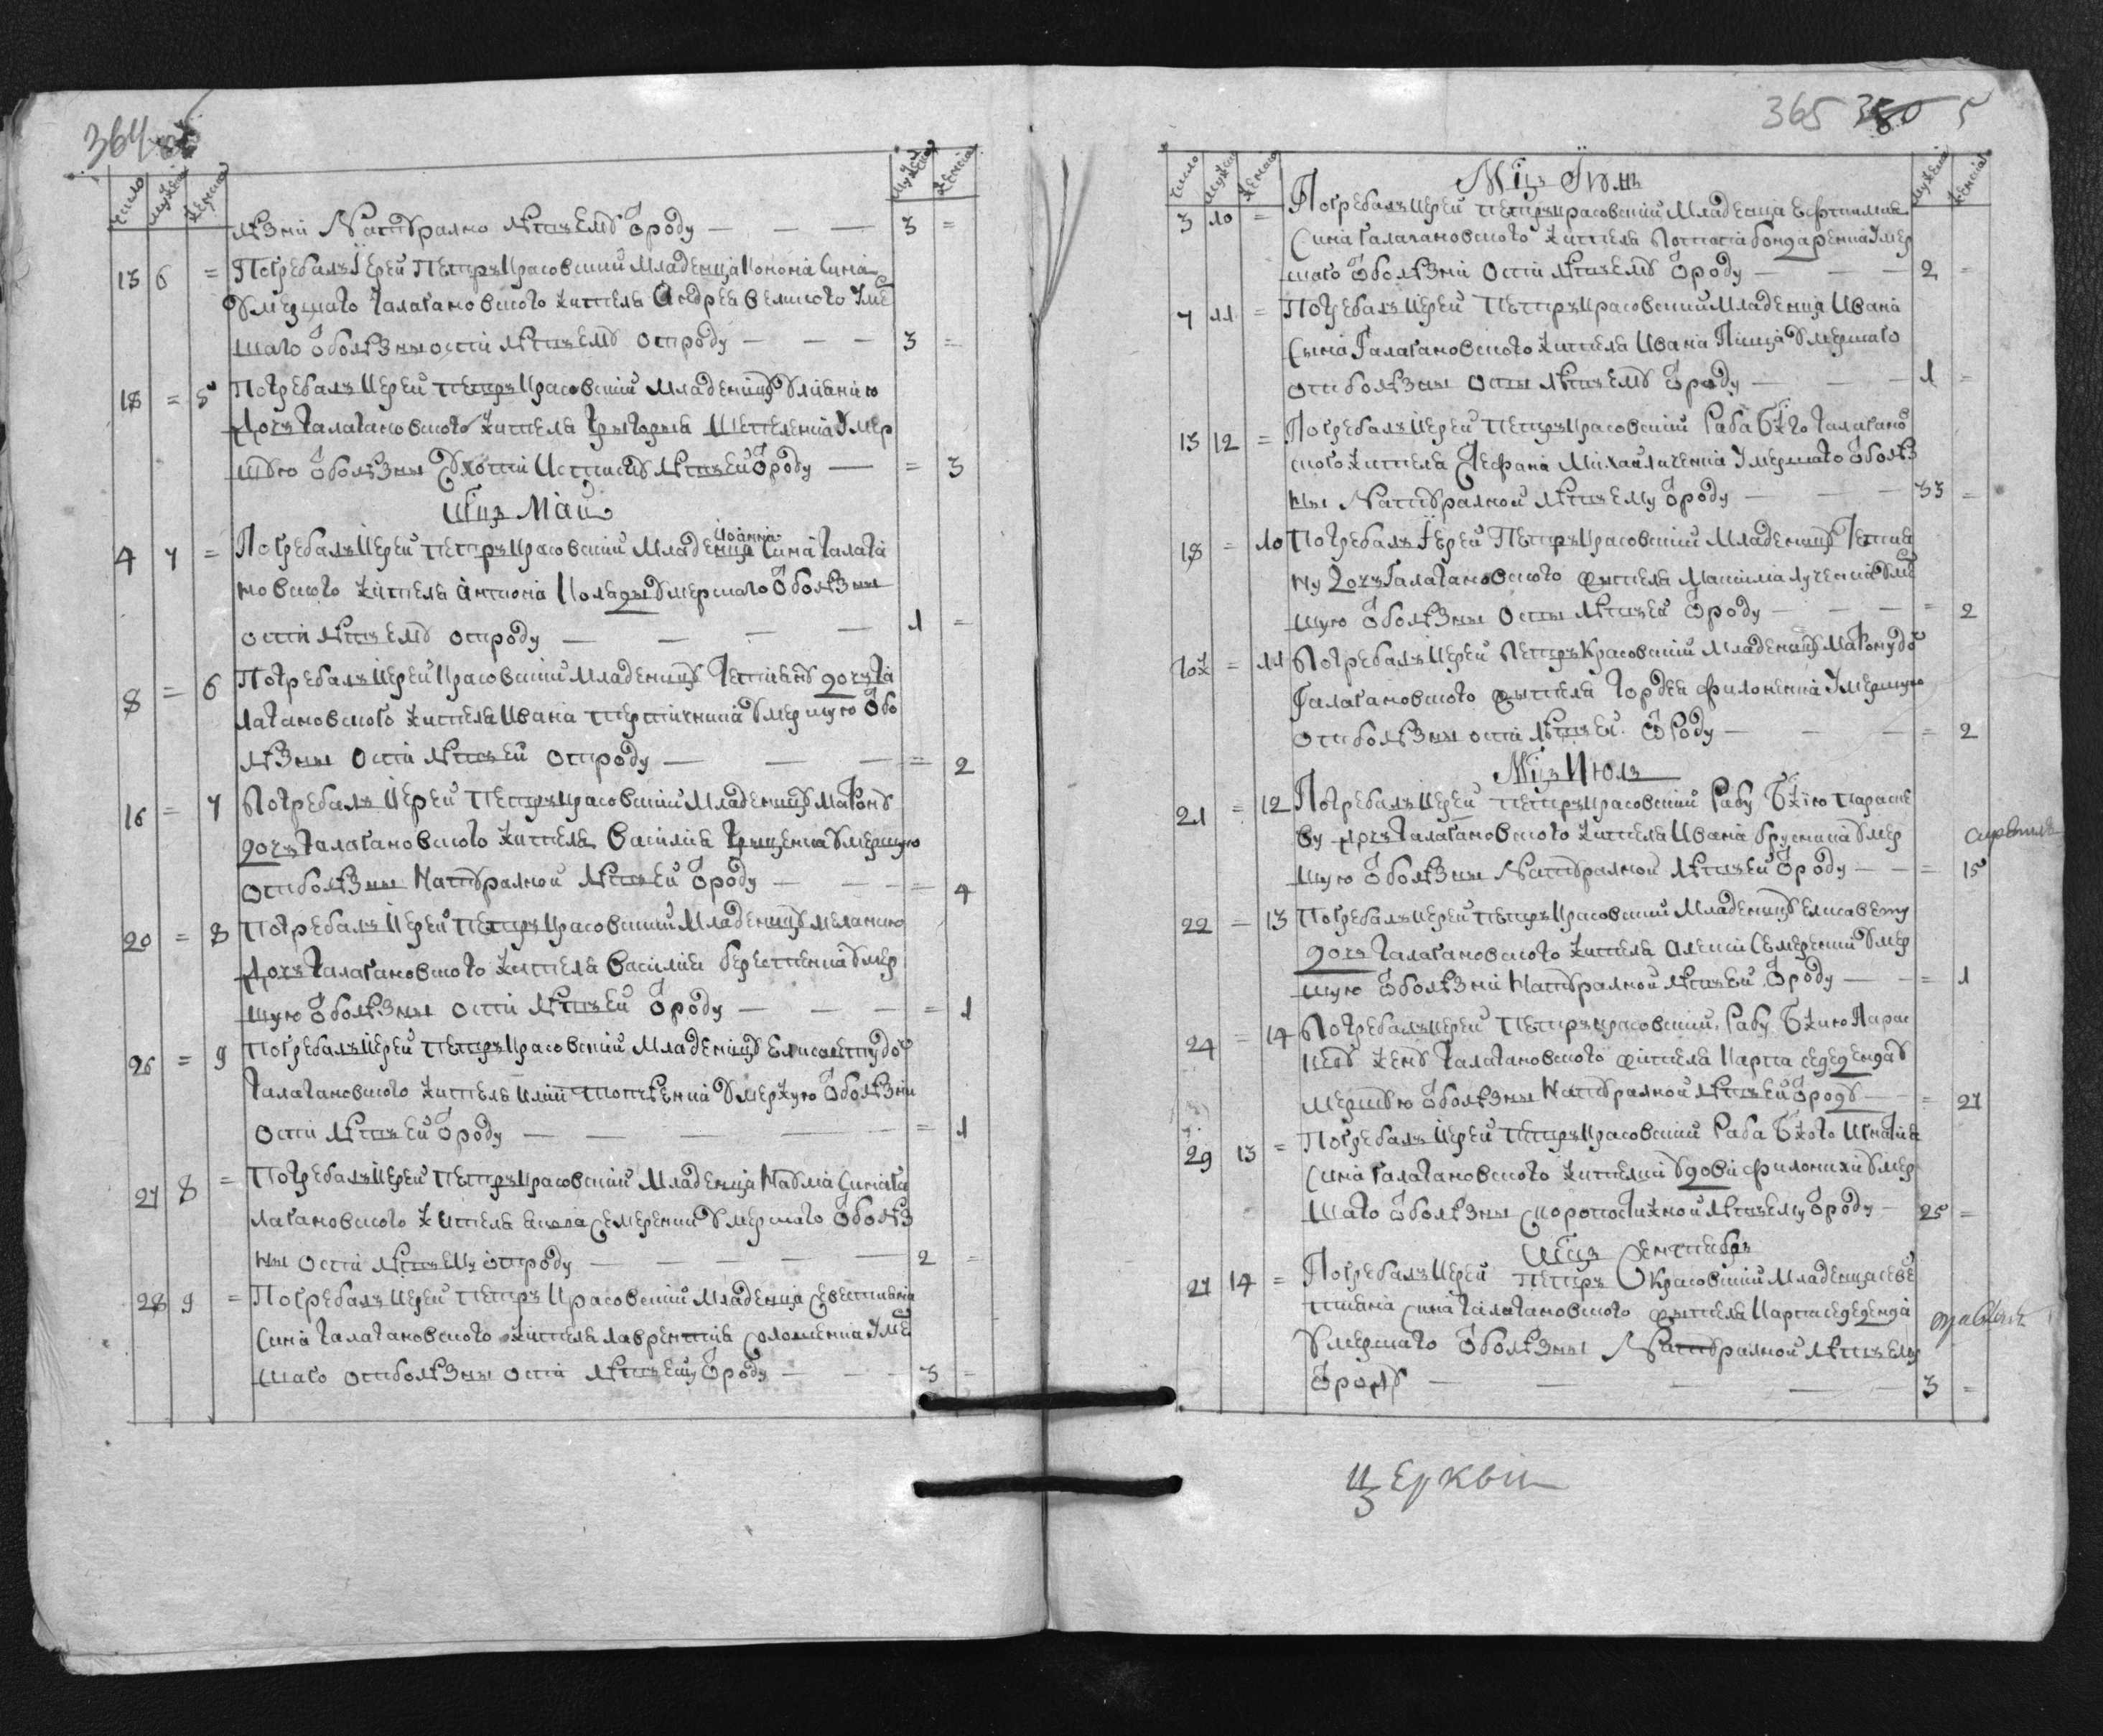 364
число мужеска женска мужеска женска
лѣзни Натурално лѣтъ ему ѿроду — — — 3 =
13 6 = Погребалъ Іерей Петръ Красовский Младенца Конона Сина
умершаго Галагановского жителя Андрея Великого уме
шаго ѿ болѣзны оспи лѣтъ ему отроду — — — 3 =
18 = 5 Погребалъ Иерей Петръ Красовский Младеницу Улиянию
Дочъ Галагановского жителя Грыгорыя умер
шую ѿ болѣзны лѣтъ ей ѿроду — = 3
Мцъ Май
4 7 = Погребалъ Иерей Петръ Красовский Младенца Иоанна Сина Галага
новского жителя Антона Коляды умершаго ѿ болѣзны
оспи лѣтъ ему отроду — — — — 1 =
8 = 6 Погребалъ Иерей Красовский Младеницу Тетияну дочъ Га
лагановского жителя Ивана умершую ѿ бо
лѣзны оспи лѣтъ ей отроду — — — = 2
16 = 7 Погребалъ Иерей Петръ Красовский Младеницу Матрону
дочъ Галагановского жителя Василия Грыценка умершую
от болѣзны Натуралной лѣтъ ей ѿроду — — — = 4
20 = 8 Погребалъ Иерей Петръ Красовский Младеницу Меланию
Дочъ Галагановского жителя Василия Берестенка умер
шую ѿ болѣзны оспи лѣтъ ей ѿроду — — — = 1
26 = 9 Погребалъ Иерей Петръ Красовский Младеницу Елисавету доч
Галагановского жителя Илии умержую ѿ болѣзни
оспи лѣтъ ей ѿроду — — — — = 1
27 8 = Погребалъ Иерей Петръ Красовский Младенца Наума Сина Га
лагановского жителя Семеренки умершаго ѿ болѣз
ны оспи лѣтъ ему отроду — — — — 2 =
28 9 = Погребалъ Иерей Петръ Красовский Младенца Севестияна
Сина Галагановского жителя Лаврентия Соломенка уме
шаго от болѣзны оспи лѣтъ ему ѿроду — — — 3 =
365 380 5
число мужеска женска мужеска женска
Мцъ Іюнь
3 10 = Погребалъ Иерей Петръ Красовский Младенца Евфимия
Сина Галагановского жителя Потапа Бондаренка умер
шаго ѿ болѣзни оспи лѣтъ ему ѿроду — — — 2 =
7 11 = Погребалъ Иерей Петръ Красовский Младенца Ивана
Сына Галагановского жителя Ивана умершаго
от болѣзны оспы лѣтъ ему ѿроду — — — 1 =
13 12 = Погребалъ Иерей Петръ Красовский Раба Бжго Галагано
ского жителя Стефана Михайличенка умершаго ѿ болѣз
ны Натуралной лѣтъ ему ѿроду — — — 33 =
18 = 10 Погребалъ Іерей Петръ Красовский Младеницу Тетия
ну Дочъ Галагановского жытеля Максима Лученка уме
шую ѿ болѣзны оспы лѣтъ ей ѿроду — — — = 2
тогож = 11 Погребалъ Иерей Петръ Красовский Младеницу Матрону до
Галагановского жытеля Гордея Филоненка умершую
от болѣзны оспи лѣтъ ей ѿроду — — — = 2
Мцъ Июль
21 = 12 Погребалъ Иерей Петръ Красовский Рабу Бжію Параске
ву Дочъ Галагановского жителя Ивана Брусника умер
шую ѿ болѣзны Натуралной лѣтъ ей ѿроду — — = 15
22 = 13 Погребалъ Иерей Петръ Красовский Младеницу Елисавету
дочъ Галагановского жителя Алексия Семеренки умер
шую ѿ болѣзни Натуралной лѣтъ ей ѿроду — — = 1
24 = 14 Погребалъ Иерей Петръ Красовский Рабу Бжию Парас
кеву жену Галагановского жителя Карпа у
мершую ѿ болѣзны Натуралной лѣтъ ей ѿроду — = 27
29 13 = Погребалъ Иерей Петръ Красовский Раба Бжого Игнатия
Сина Галагановского удови Филонихи умер
шаго ѿ болѣзны скоропостижной лѣтъ ему ѿроду — 25 =
Мцъ Сентябръ
27 14 = Погребалъ Иерей Петръ Красовский Младенца Севе
стияна Сина Галагановского жытеля Карпа
умершаго ѿ болѣзны Натуралной лѣтъ ему
ѿроду — — — — 3 =
церкви